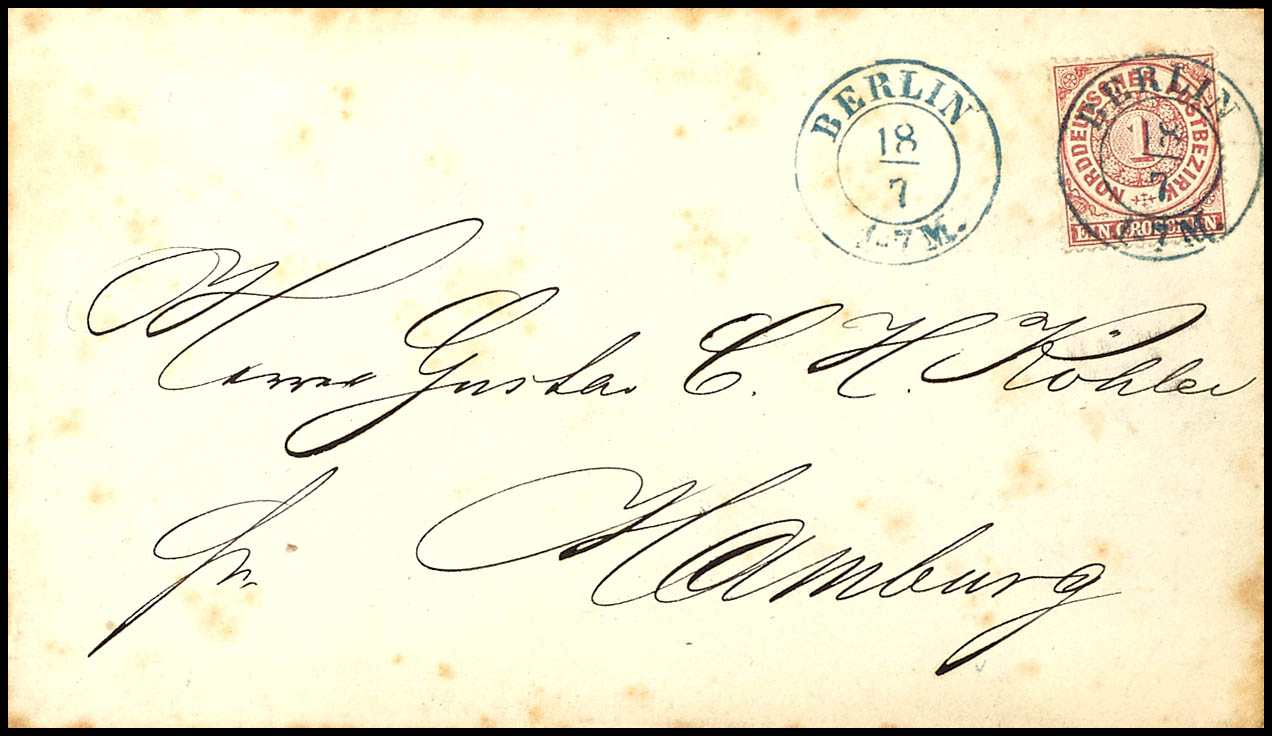 BERLIN
18
7
1-7 M.
NORDDEUTSCHER POSTBEZIRK
1
EIN GROSCHEN
BERLIN
18
7
7 M
Gustav C. H. Köhler
fr. Hamburg